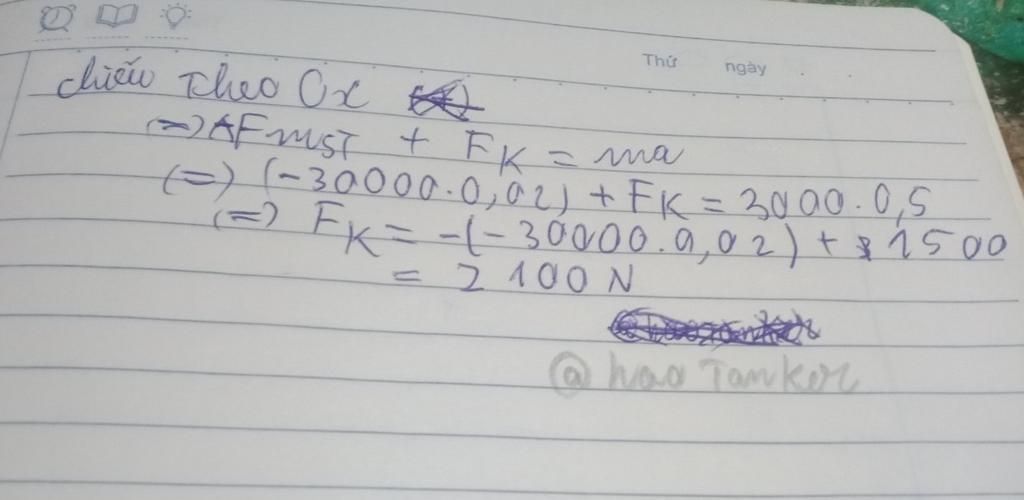 Thứ ngày
chiếu Theo Ox
(=) -Fmst + FK = ma
(=) (-30000.0,02) + FK = 3000.0,5
(=) FK = -(-30000.0,02) + 1500
= 2100N
@haoTanker